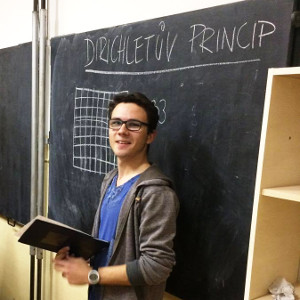 DIRICHLETŮV PRINCIP
33